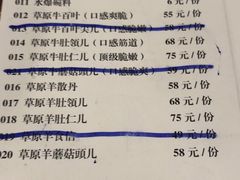 011 水爆碗料 6元/份
012 草原牛百叶（口感爽脆） 55元/份
013 草原牛百叶尖儿（口感脆嫩） 元/份
014 草原牛肚领儿（口感筋道） 68元/份
015 草原牛肚仁儿（顶级脆嫩） 75元/份
021 草原牛蘑菇头儿（口感脆爽） 59元/份
016 草原羊散丹 58元/份
017 草原羊肚领儿 68元/份
018 草原羊肚仁儿 75元/份
019 草原羊食信 49元/份
020 草原羊蘑菇头儿 58元/份